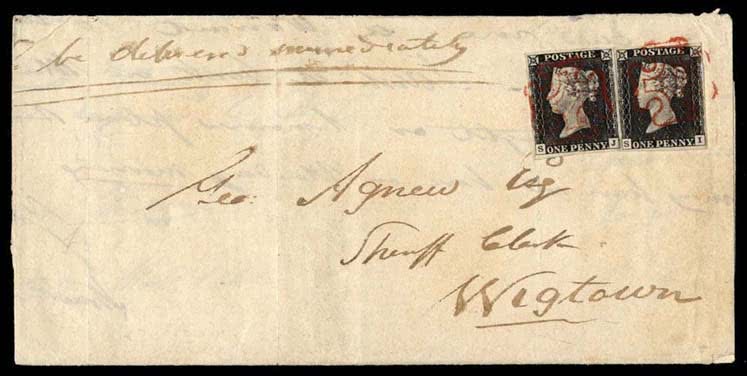 To be delivered immediately
POSTAGE POSTAGE
S ONE PENNY J S ONE PENNY I
Geo: Agnew Esq
Sheriff Clerk
Wigtown